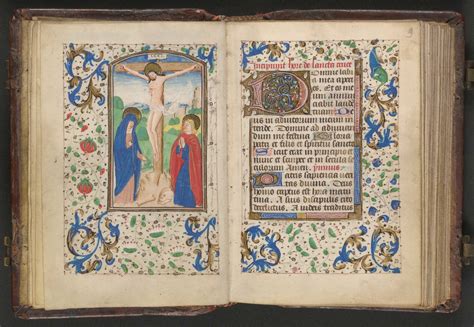 INRI
Incipiunt hore de sancta cruce
Domine labia
mea aperi
es. Et os me
um annun
ciabit laude
us in adiutorium meum in
tende. Domine ad adiuuan
dum me
patri et filio et spiritui sancto
Sicut erat in principio et
nunc et semper et in secula se
culorum Amen.
Patris sapiencia veri
tas diuina. Deus
homo captus est hora matu
tina. A suis discipulis cito
derelictus. A iudeis traditus